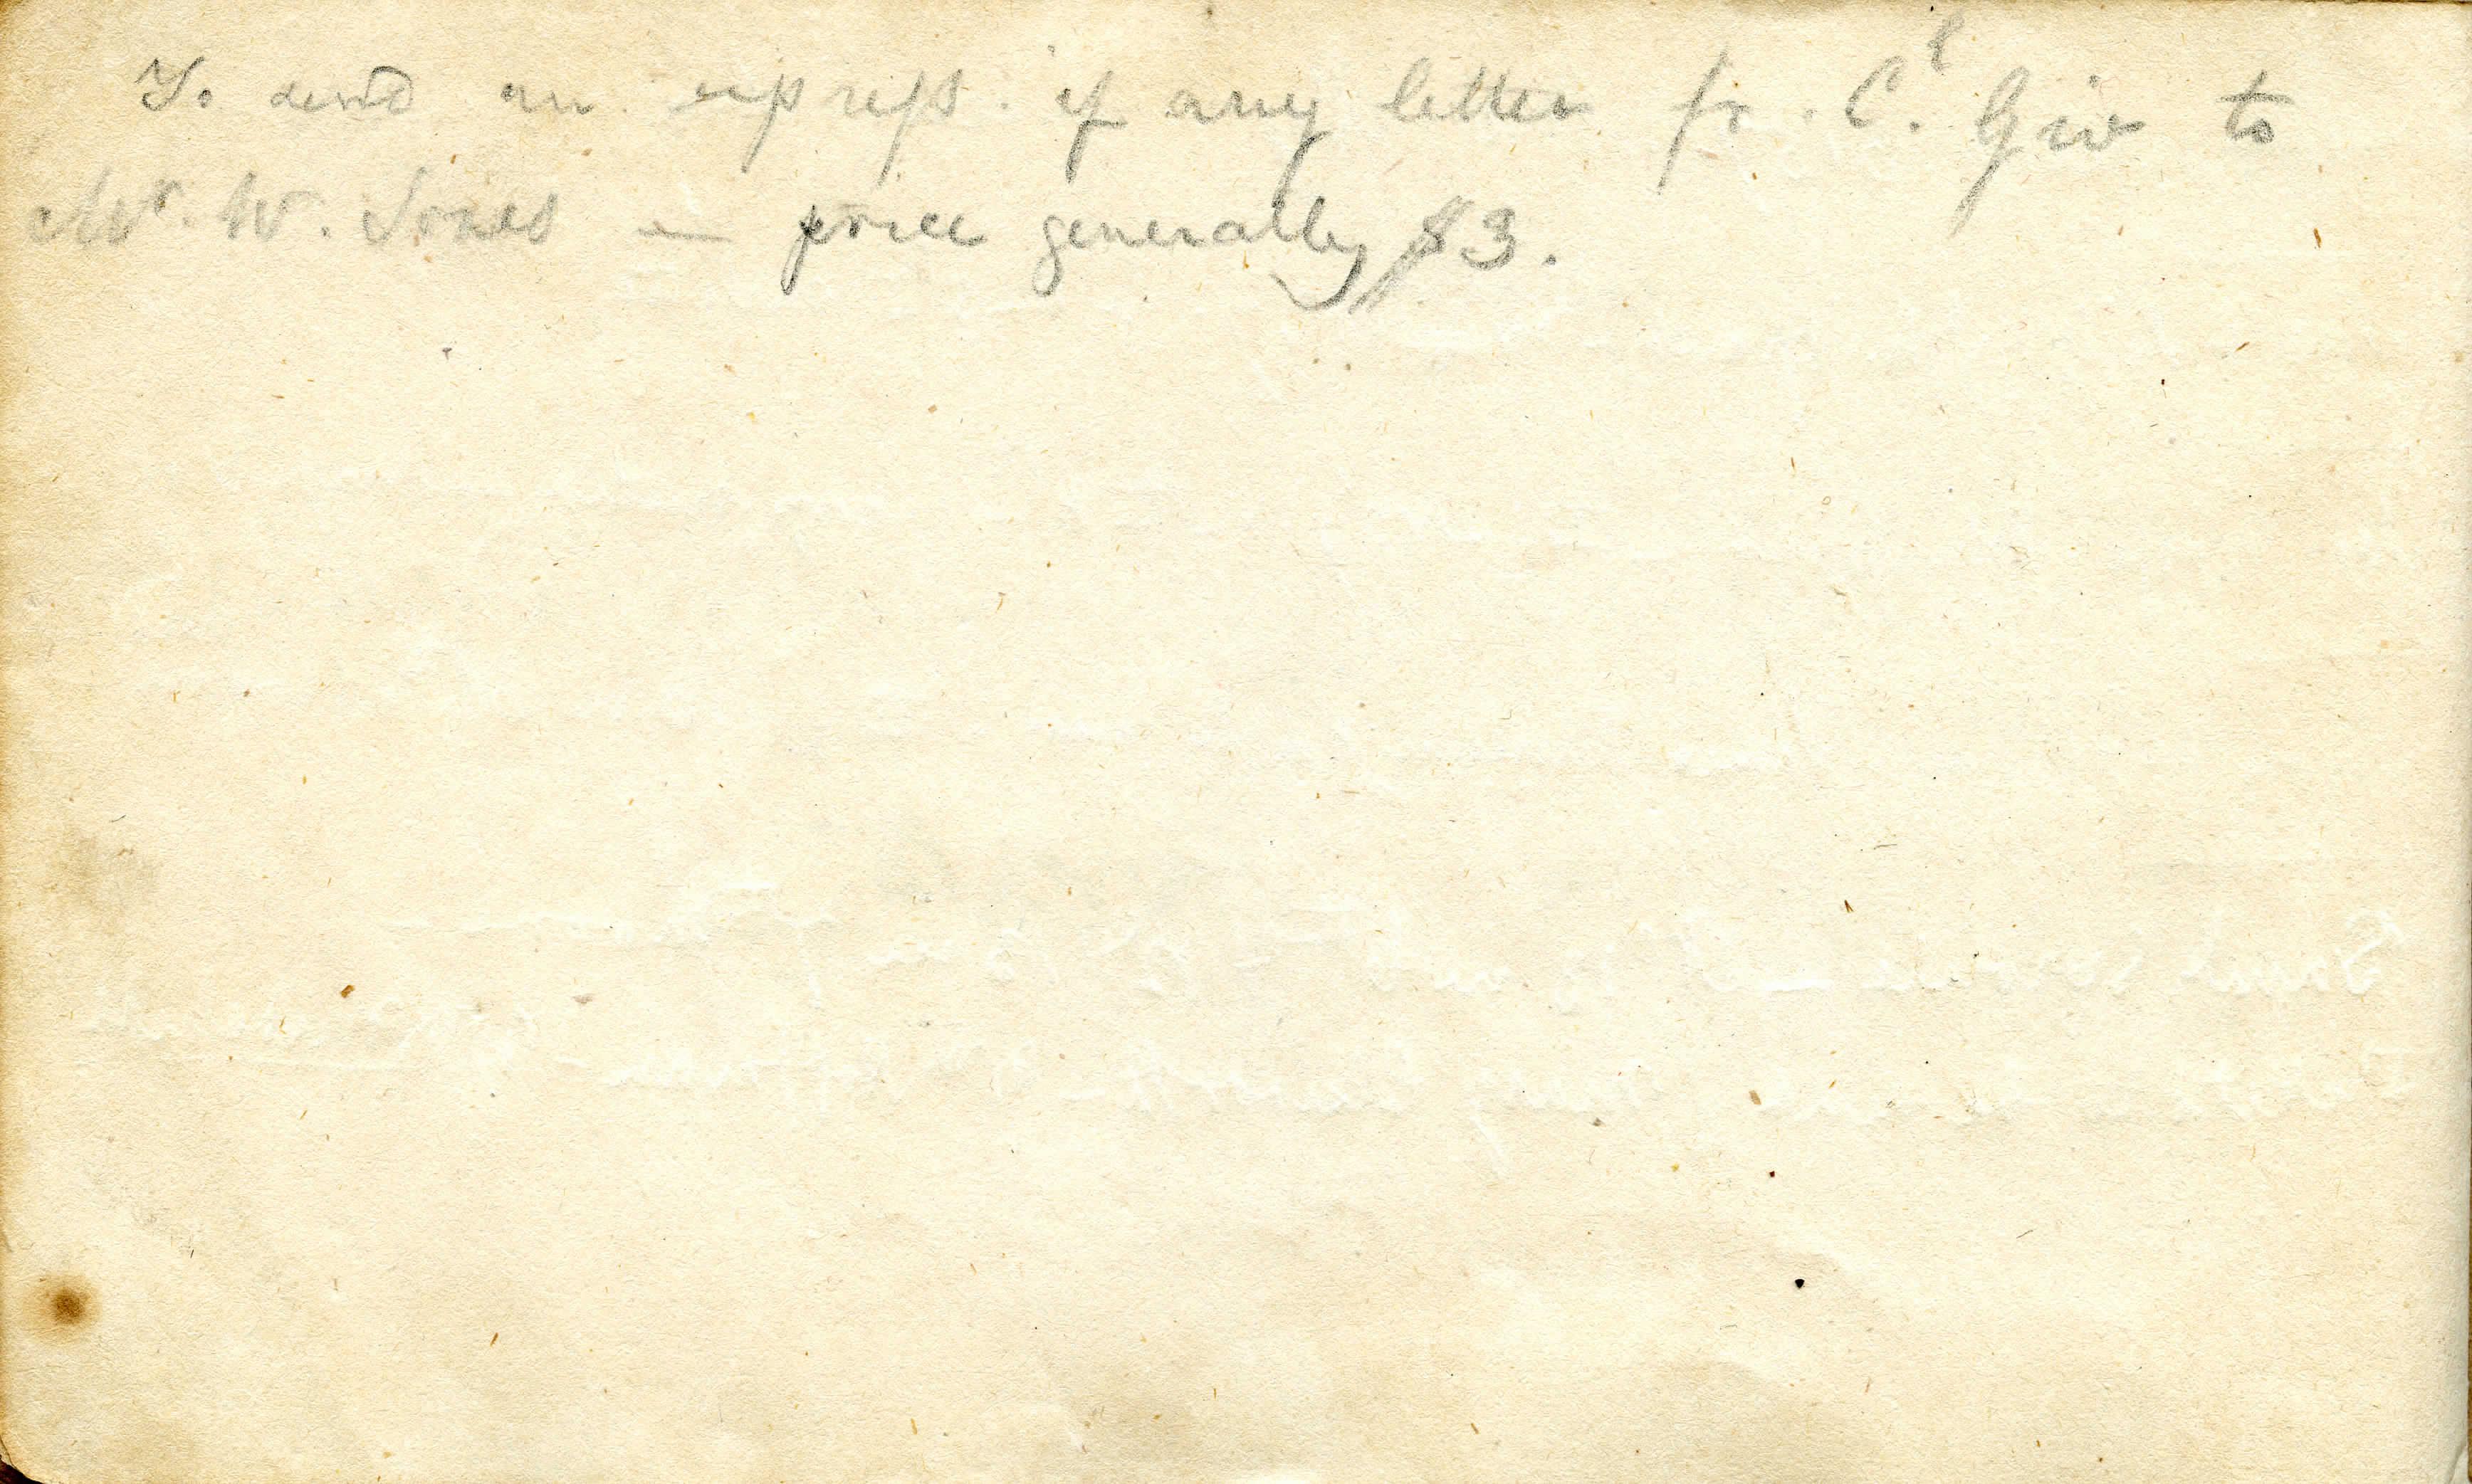 To send an express. if any letter fr. C. Give to
Mr. W. Jones — price generally $3.